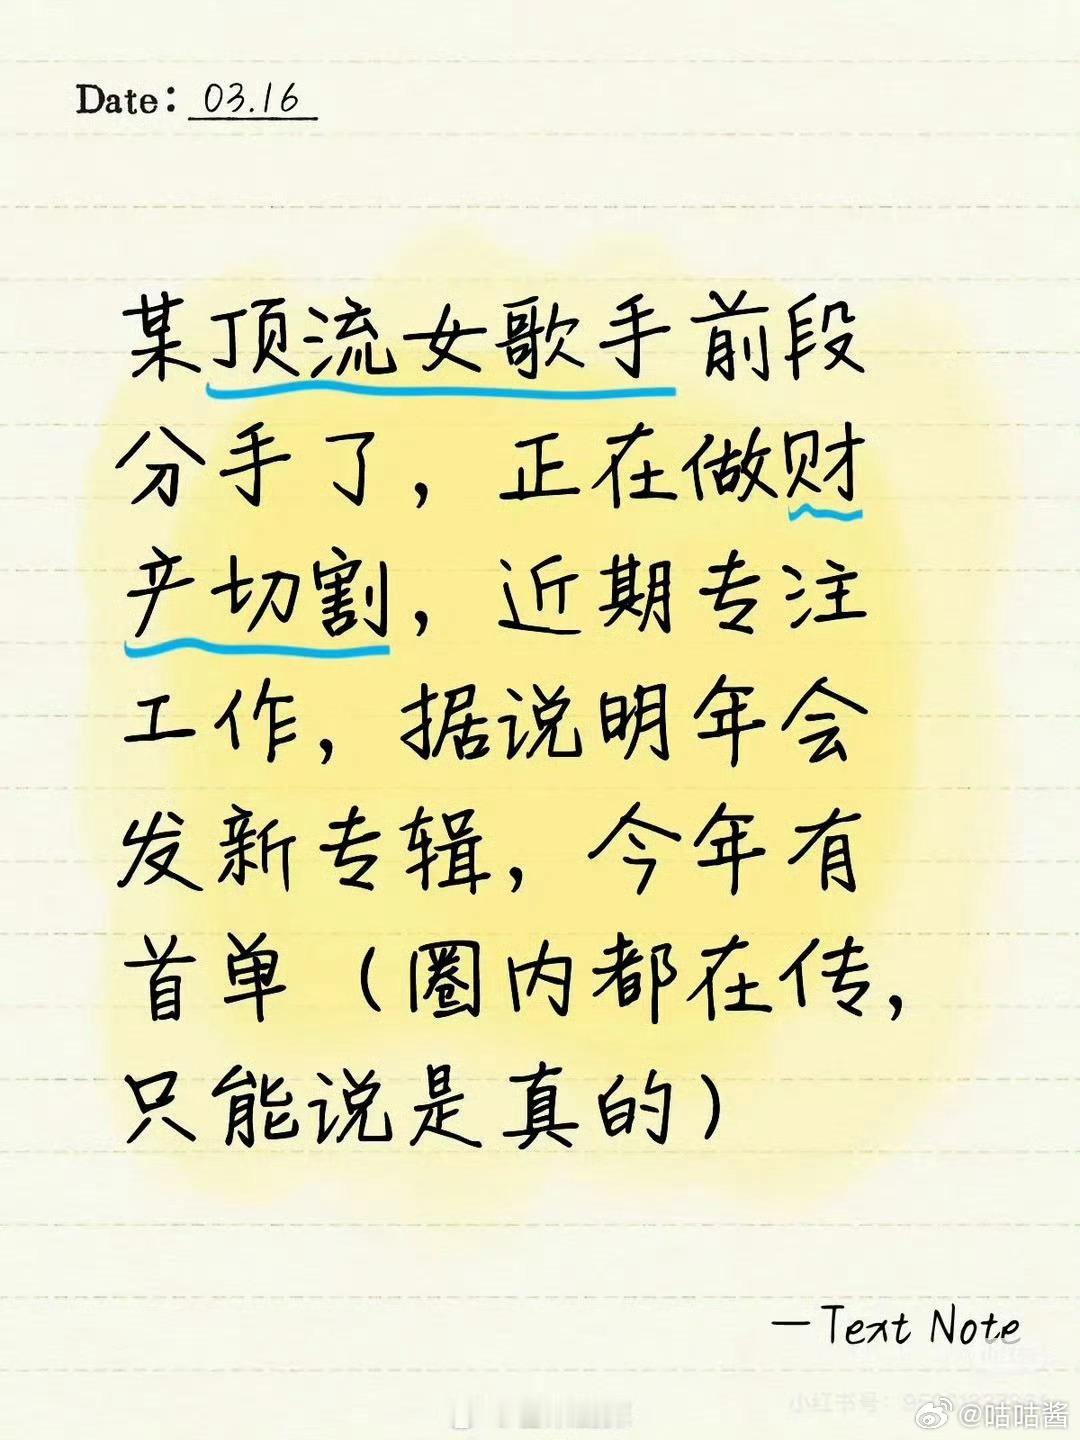 Date: 03.16
某顶流女歌手前段
分手了，正在做财
产切割，近期专注
工作，据说明年会
发新专辑，今年有
首单（圈内都在传，
只能说是真的）
—Text Note
小红书号：
@咕咕酱